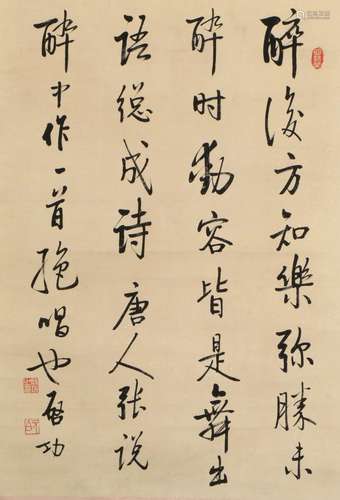 醉後方知樂弥勝未
醉时動容皆是舞出
语總成诗唐人張说
醉中作一首绝唱也启功